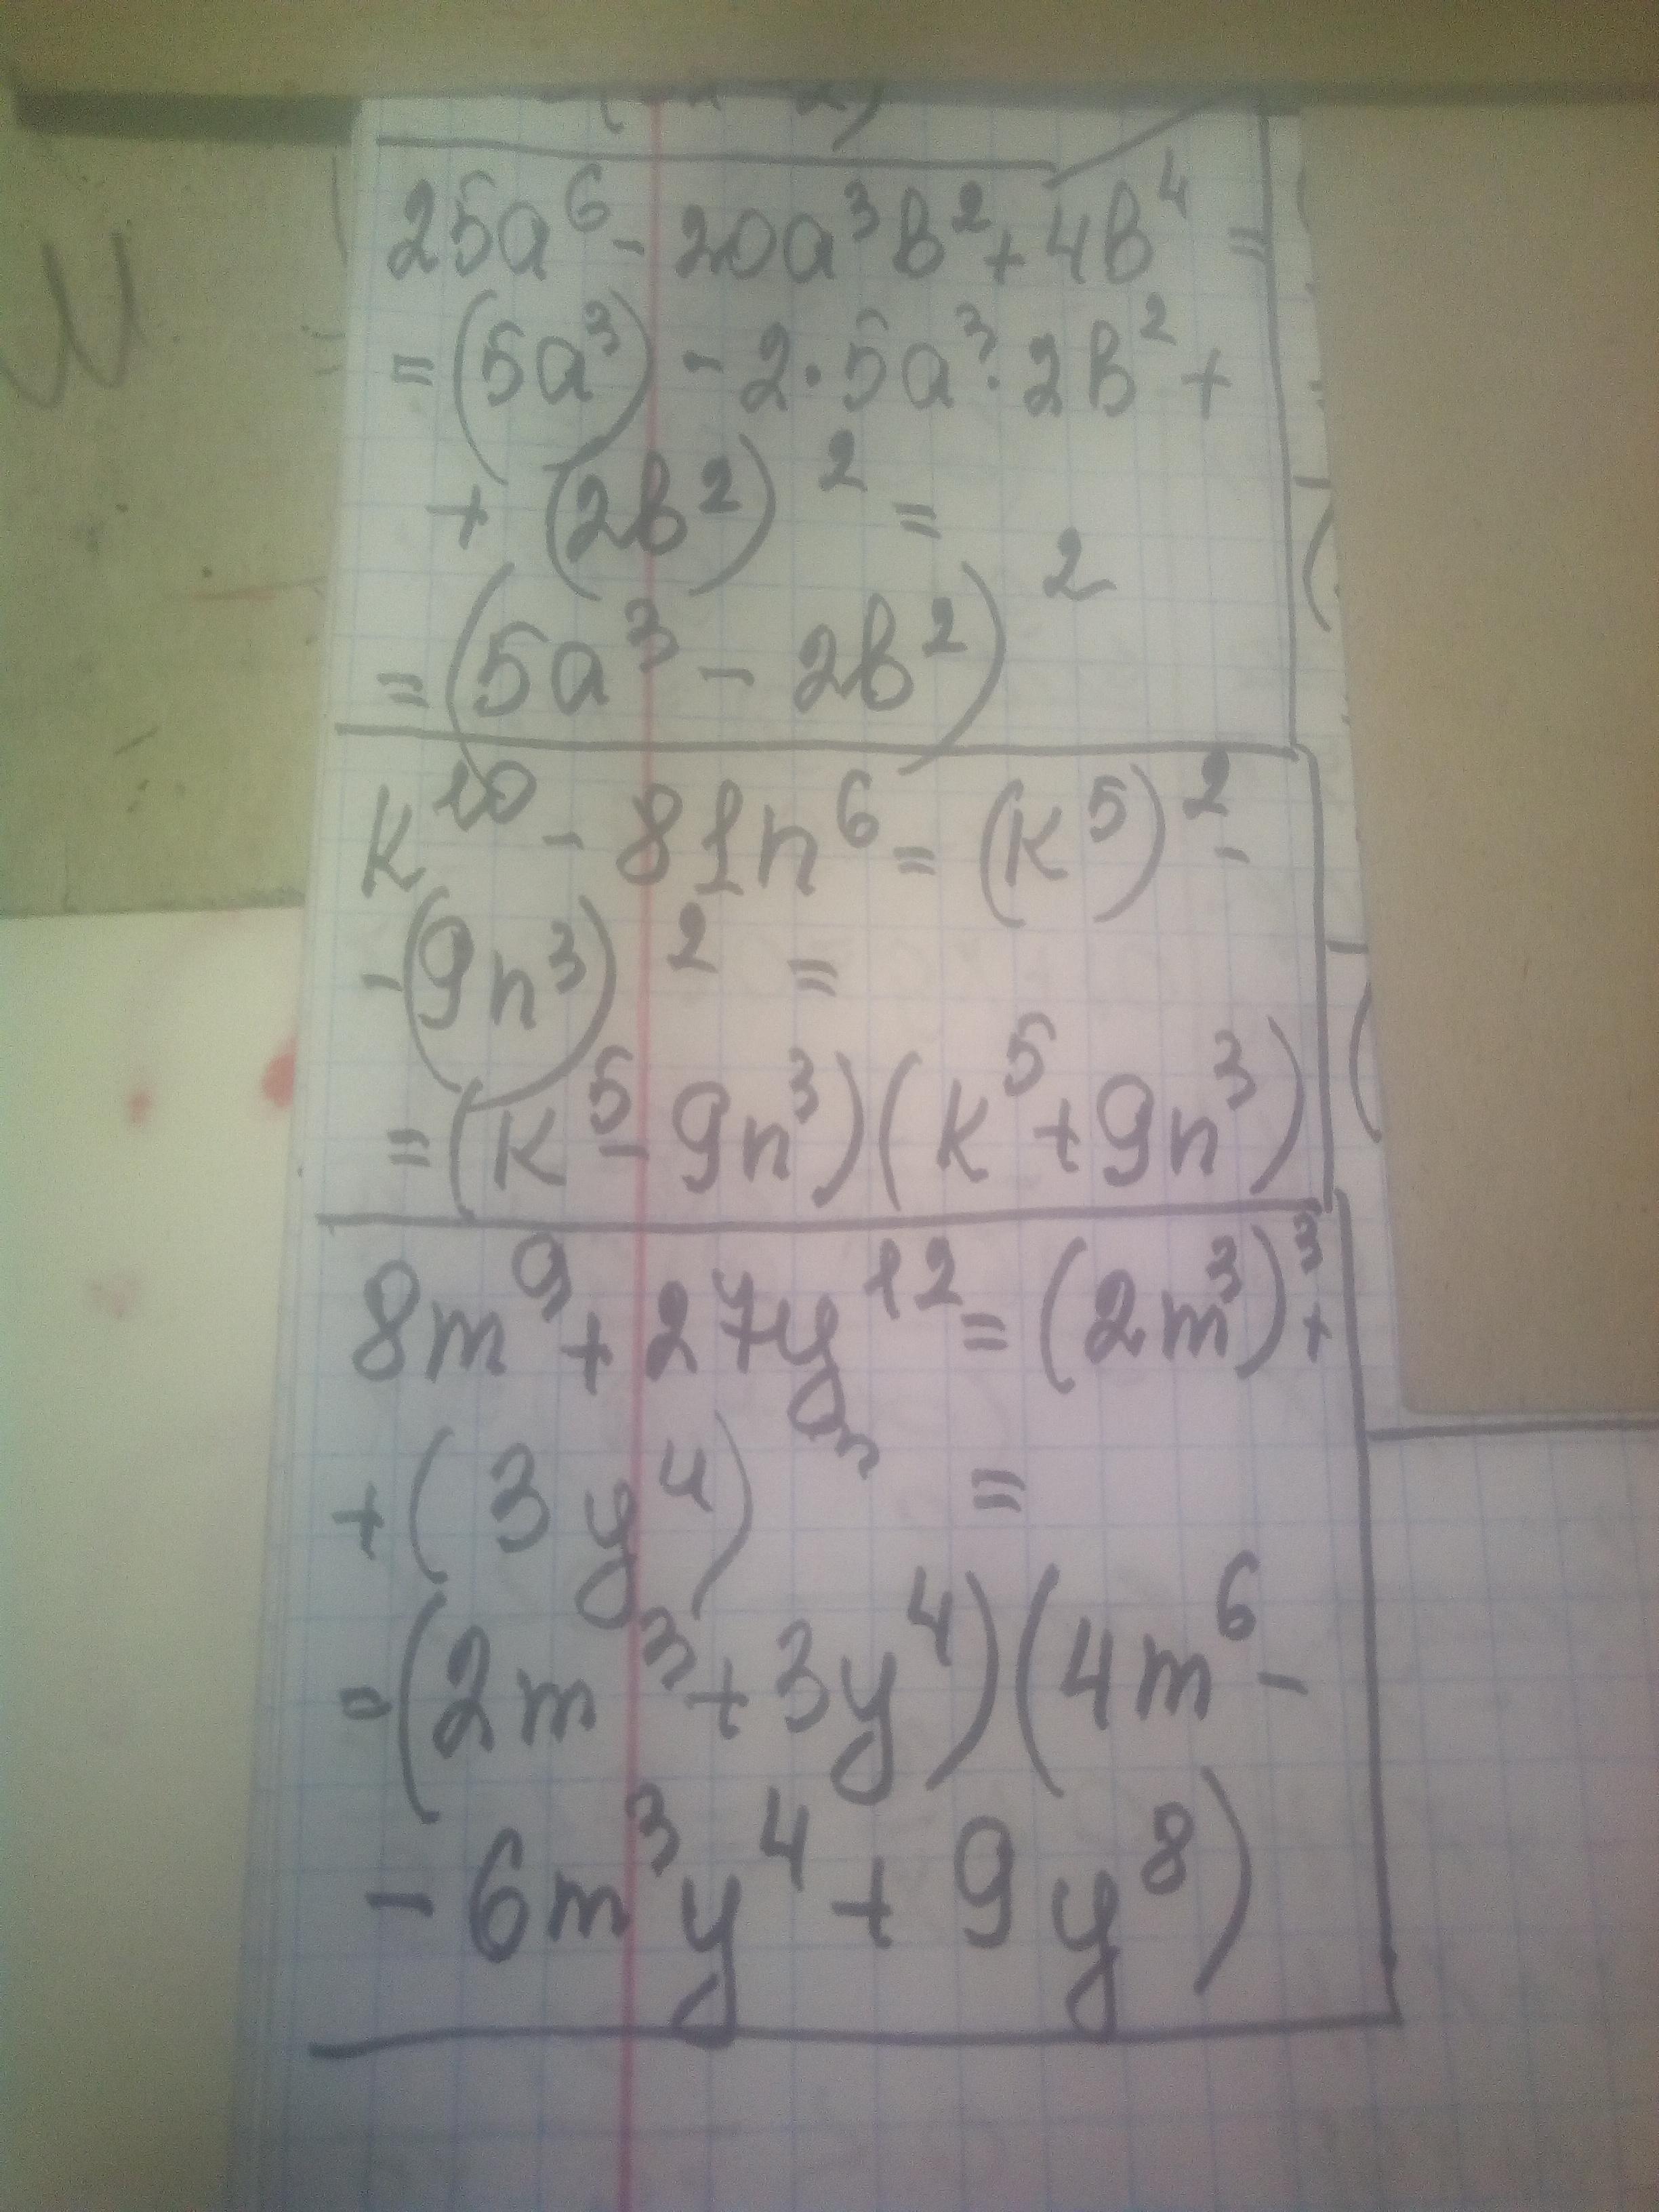 25a⁶ - 20a³b² + 4b⁴ =
= (5a³) - 2·5a³·2b² +
+ (2b²)² =
= (5a³ - 2b²)²
k¹⁰ - 81n⁶ = (k⁵)² -
- (9n³)² =
= (k⁵ - 9n³)(k⁵ + 9n³)
8m⁹ + 27y¹² = (2m³)³ +
+ (3y⁴)³ =
= (2m³ + 3y⁴)(4m⁶ -
- 6m³y⁴ + 9y⁸)